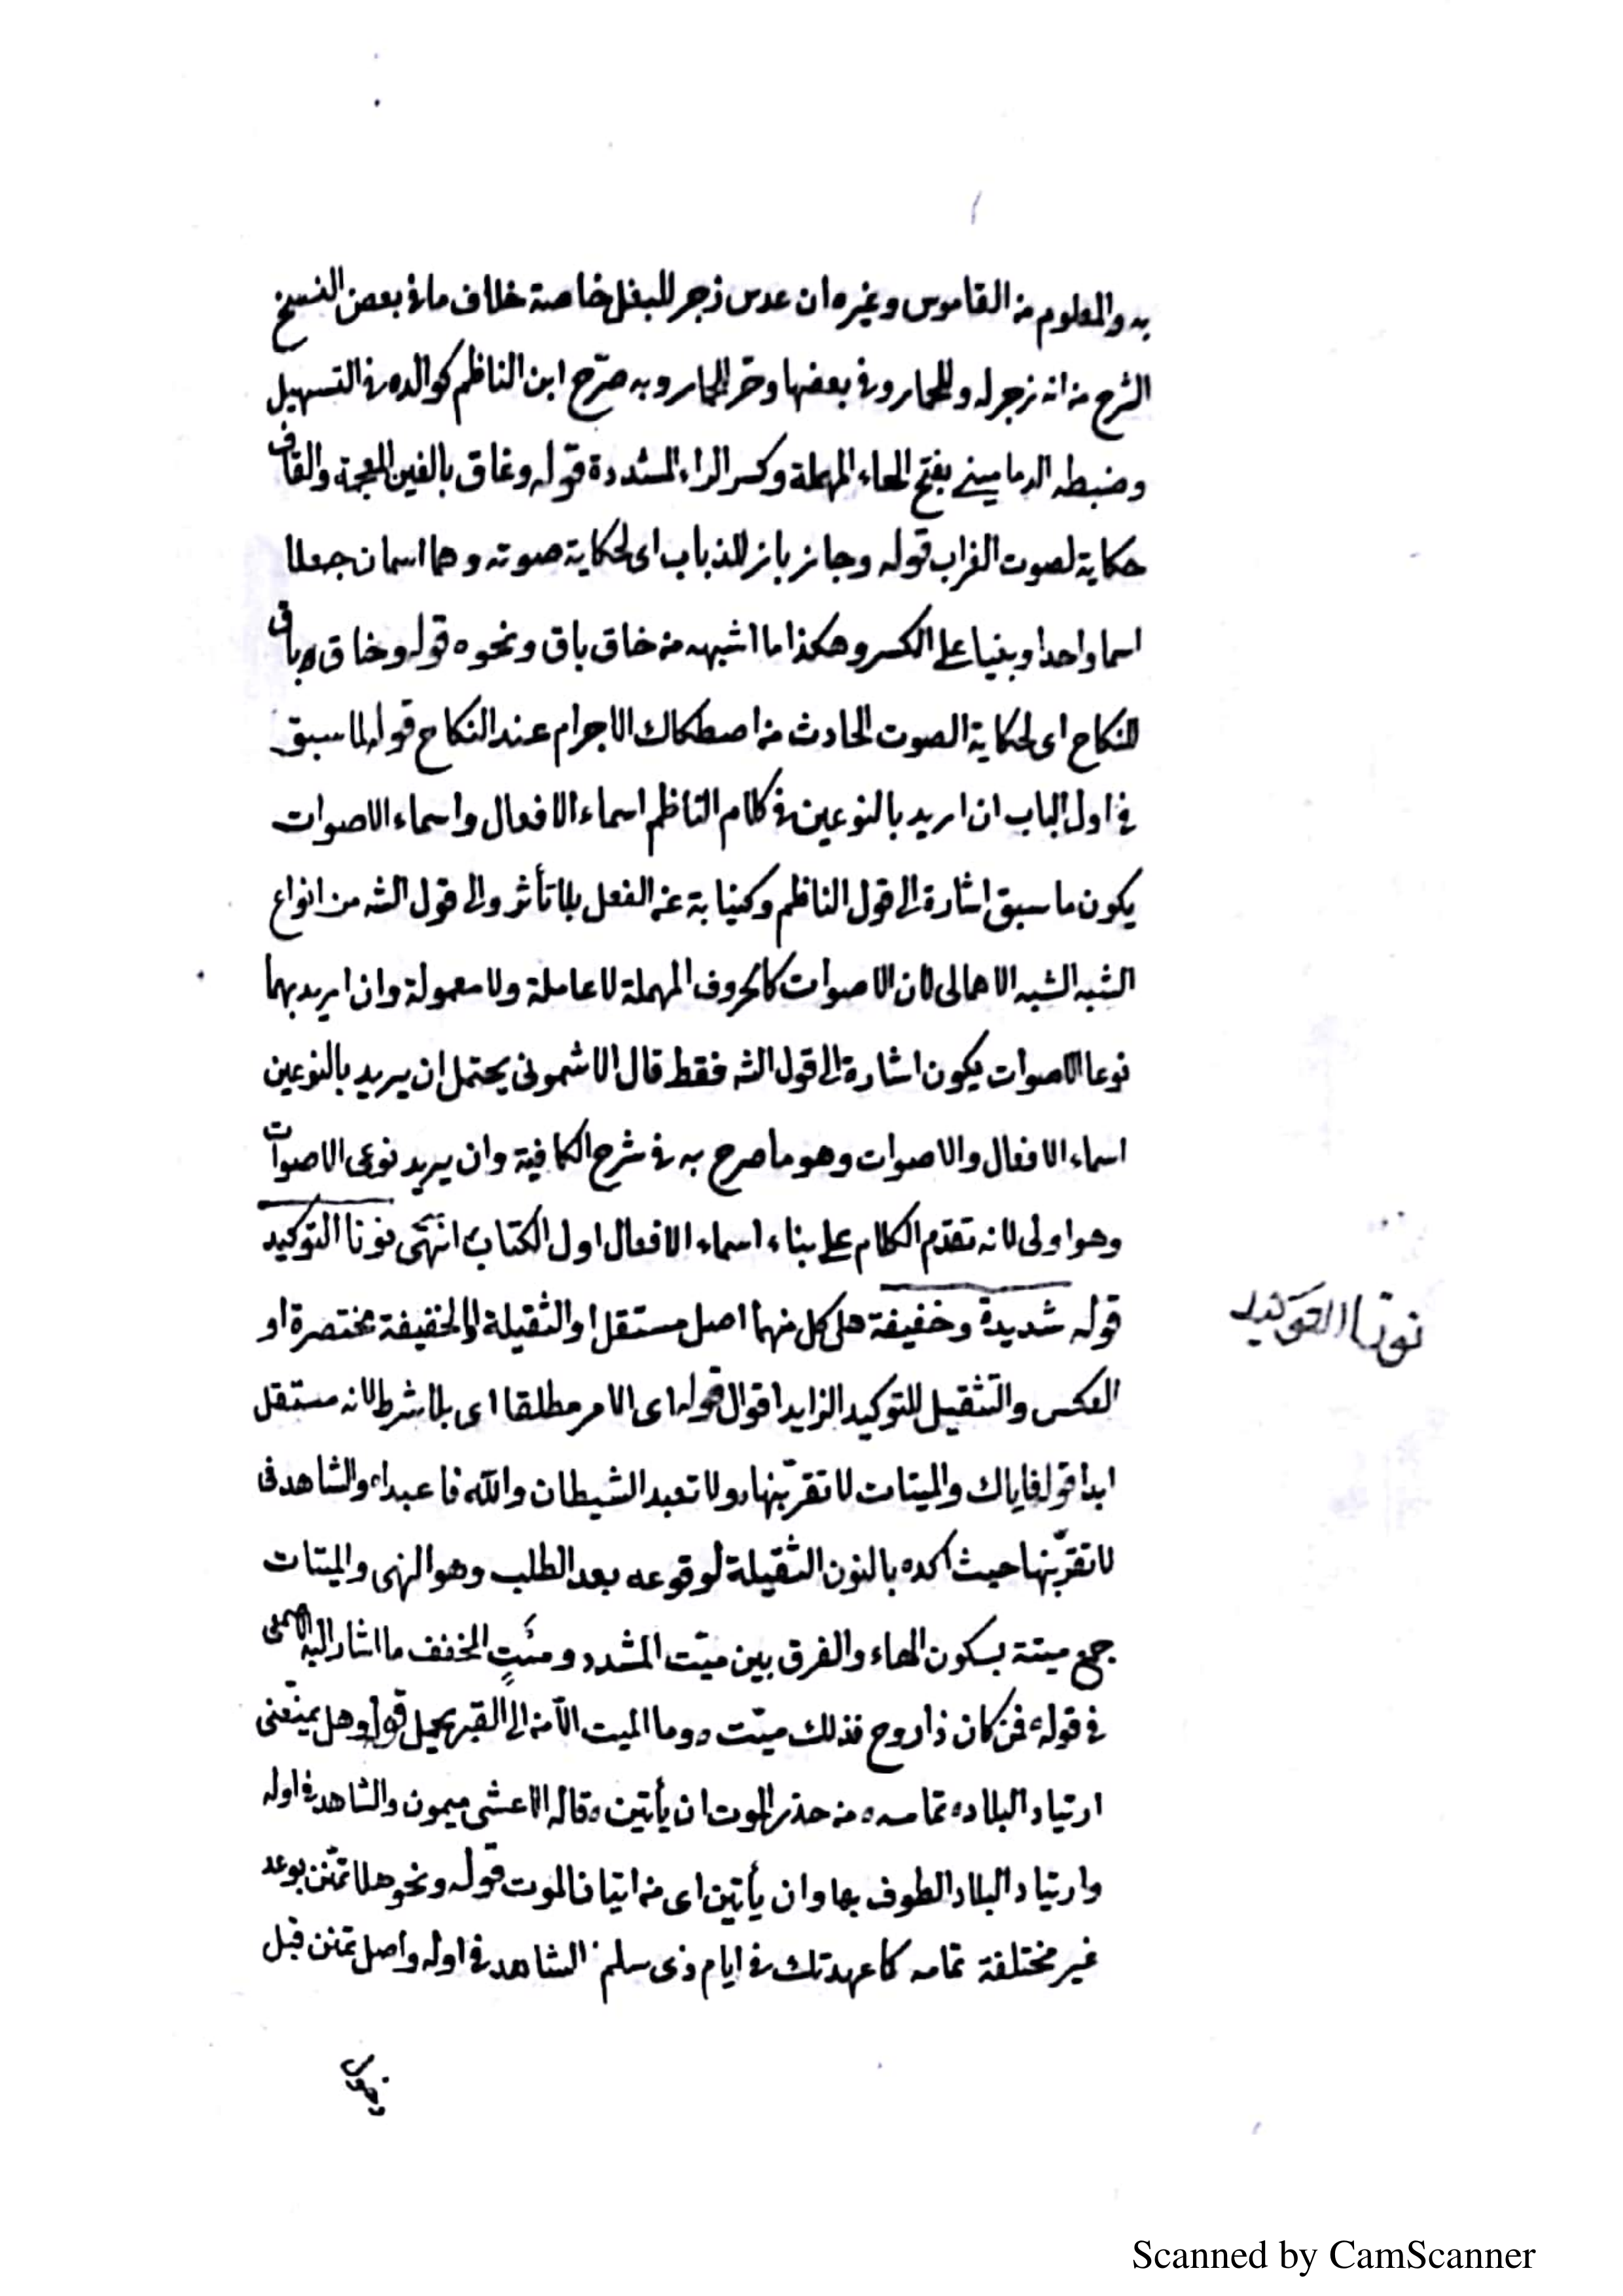 به والمعلوم من القاموس وغيره ان عدس زجر للبغل خاصة خلاف ما فى بعض النسخ
الشرح من انه زجر له وللحمار وفى بعضها وحر للحمار وبه صرّح ابن الناظم كوالده فى التسهيل
وضبطه الدمامينى بفتح الحاء المهملة وكسر الراء المشددة قوله وغاق بالغين المعجمة والقاف
حكاية لصوت الغراب قوله وجاز باز للذباب اى لحكاية صوته وهما اسمان جعلا
اسما واحدا وبنيا على الكسر وهكذا ما اشبهه من خاق باق ونحوه قوله وخاق باق
للنكاح اى لحكاية الصوت الحادث من اصطكاك الاجرام عند النكاح قوله لما سبق
فى اول الباب ان اريد بالنوعين فى كلام الناظم اسماء الافعال واسماء الاصوات
يكون ما سبق اشارة الى قول الناظم وكنيابة عن الفعل بلا تأثر والى قول الشه من انواع
الشبه الشبه الاهمالى لان الاصوات كالحروف المهملة لا عاملة ولا معمولة وان اريد بهما
نوعا الاصوات يكون اشارة الى قول الشه فقط قال الاشمونى يحتمل ان يريد بالنوعين
اسماء الافعال والاصوات وهو ما صرح به فى شرح الكافية وان يريد نوعى الاصوات
وهو اولى لانه تقدم الكلام على بناء اسماء الافعال اول الكتاب انتهى نونا التوكيد
قوله شديدة وخفيفة هل كل منهما اصل مستقل او الثقيلة والخفيفة مختصرة او
نونا التوكيد
العكس والتثقيل للتوكيد الزايد اقوال قوله اى الامر مطلقا اى بلا شرط لانه مستقل
ابدا قوله فاياك والميتات لا تقربّنها ولا تعبد الشيطان والله فاعبدا، والشاهد فى
لا تقربّنها حيث اكده بالنون الثقيلة لوقوعه بعد الطلب وهو النهى والميتات
جمع ميتة بسكون الهاء والفرق بين ميّت المشدد وميْت المخفف ما اشار اليه
فى قوله فمن كان ذا روح فذلك ميّت وما الميت الا من الى القبر يحمل قوله وهل يمنعنّى
ارتياد البلاد تمامه من حذر الموت ان يأتين قاله الاعشى ميمون والشاهد فى اوله
وارتياد البلاد الطوف بها وان يأتين اى من اتيان الموت قوله ونحو هلا تمنّن بوعد
غير مختلفة تمامه كما عهدتك فى ايام ذى سلم الشاهد فى اوله واصل تمنن قبل